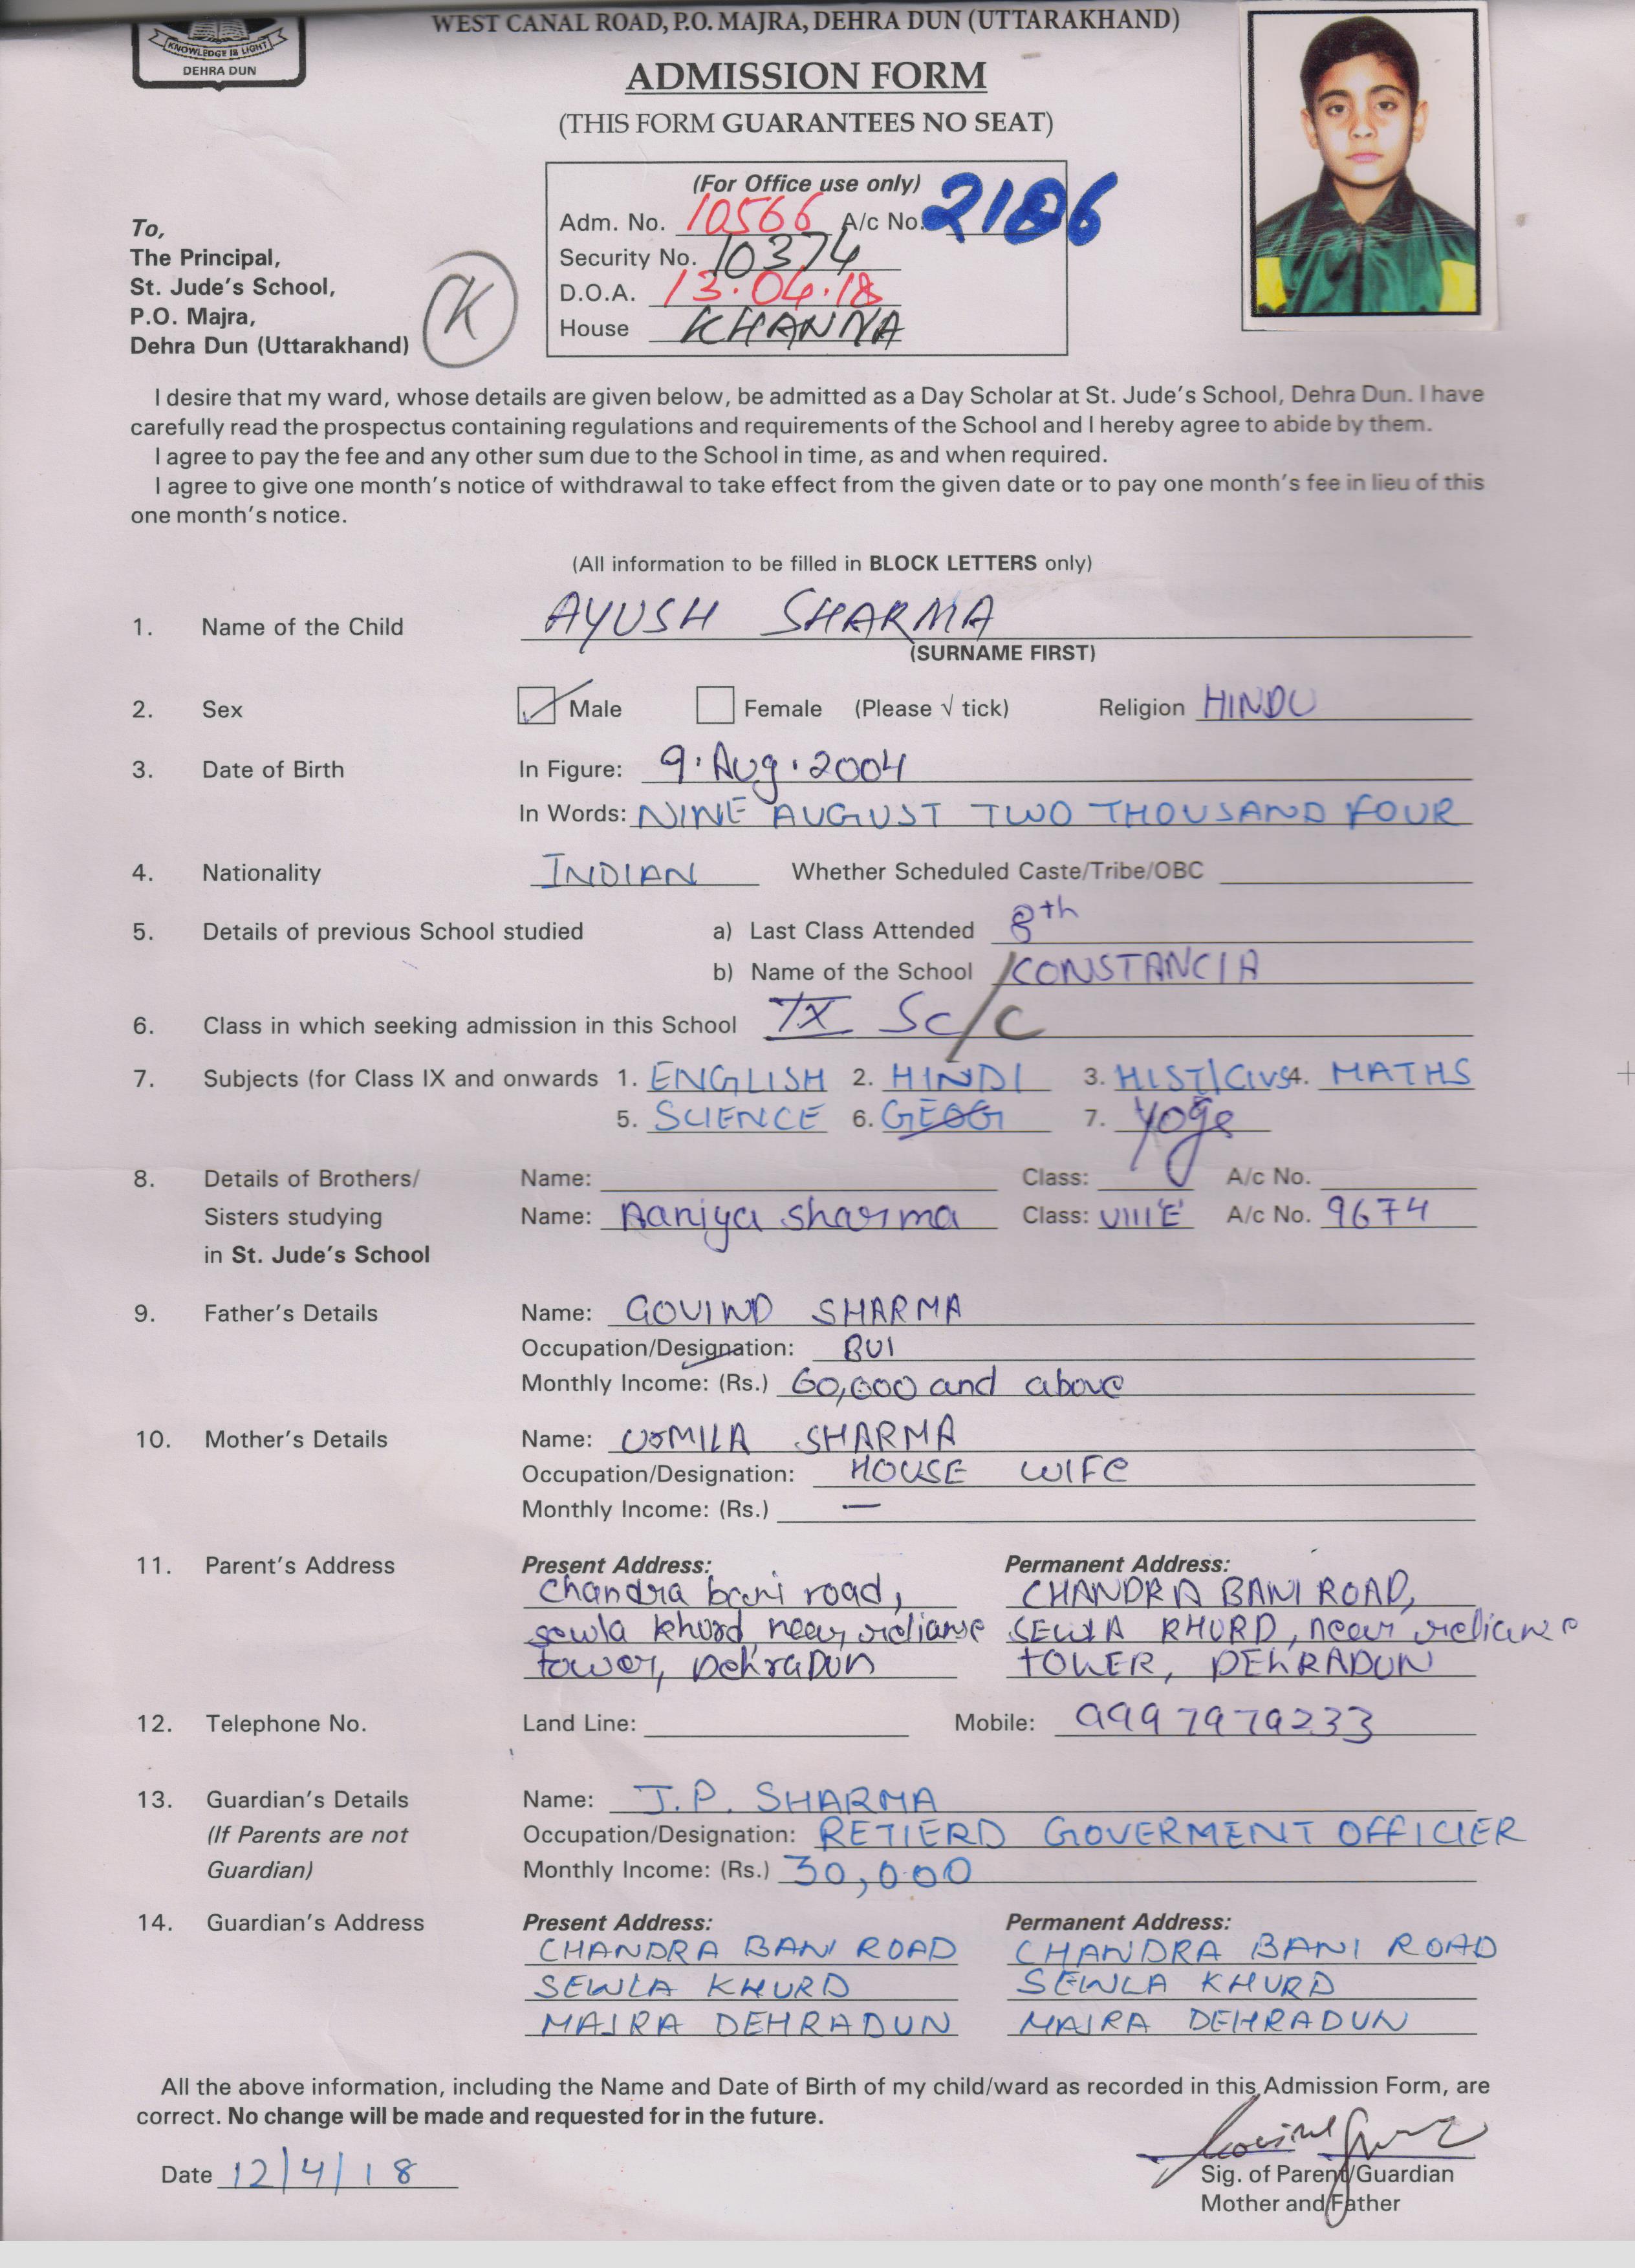 WEST CANAL ROAD, P.O. MAJRA, DEHRA DUN (UTTARAKHAND)
KNOWLEDGE IS LIGHT
DEHRA DUN
ADMISSION FORM
(THIS FORM GUARANTEES NO SEAT)
(For Office use only)
Adm. No. 10566 A/c No. 2186
Security No. 10374
D.O.A. 13.04.18
House KHANNA
To,
The Principal,
St. Jude's School,
P.O. Majra,
Dehra Dun (Uttarakhand)
K
I desire that my ward, whose details are given below, be admitted as a Day Scholar at St. Jude's School, Dehra Dun. I have
carefully read the prospectus containing regulations and requirements of the School and I hereby agree to abide by them.
I agree to pay the fee and any other sum due to the School in time, as and when required.
I agree to give one month's notice of withdrawal to take effect from the given date or to pay one month's fee in lieu of this
one month's notice.
(All information to be filled in BLOCK LETTERS only)
1. Name of the Child AYUSH SHARMA
(SURNAME FIRST)
2. Sex Male Female (Please √ tick) Religion HINDU
3. Date of Birth In Figure: 9.Aug.2004
In Words: NINE AUGUST TWO THOUSAND FOUR
4. Nationality INDIAN Whether Scheduled Caste/Tribe/OBC
5. Details of previous School studied a) Last Class Attended 8th
b) Name of the School CONSTANCIA
6. Class in which seeking admission in this School IX Sc/C
7. Subjects (for Class IX and onwards 1. ENGLISH 2. HINDI 3. HIST/Civs 4. MATHS
5. SCIENCE 6. GEOG 7. Yoge
8. Details of Brothers/ Name: Class: A/c No.
Sisters studying Name: Aaniya Sharma Class: VIII'E' A/c No. 9674
in St. Jude's School
9. Father's Details Name: GOVIND SHARMA
Occupation/Designation: BUI
Monthly Income: (Rs.) 60,000 and above
10. Mother's Details Name: UrMILA SHARMA
Occupation/Designation: HOUSE WIFe
Monthly Income: (Rs.) —
11. Parent's Address Present Address: Permanent Address:
Chandra bani road, CHANDRA BANI ROAD,
sewla khurd near reliance SEWLA KHURD, near reliance
tower, DehraDun TOWER, DEhRADUN
12. Telephone No. Land Line: Mobile: 9997979233
13. Guardian's Details Name: J.P. SHARMA
(If Parents are not Occupation/Designation: RETIERD GOVERMENT OFFICIER
Guardian) Monthly Income: (Rs.) 30,000
14. Guardian's Address Present Address: Permanent Address:
CHANDRA BANI ROAD CHANDRA BANI ROAD
SEWLA KHURD SEWLA KHURD
MAJRA DEHRADUN MAJRA DEHRADUN
All the above information, including the Name and Date of Birth of my child/ward as recorded in this Admission Form, are
correct. No change will be made and requested for in the future.
Date 12/4/18
Sig. of Parent/Guardian
Mother and Father